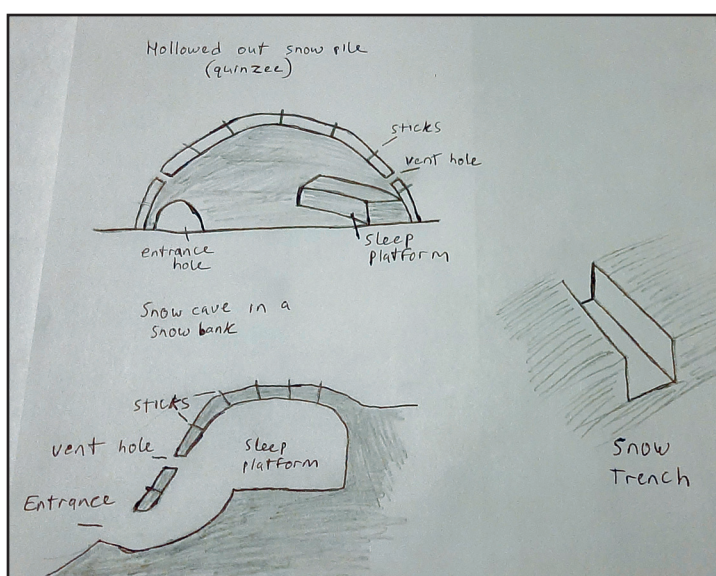 Hollowed out snow pile
(quinzee)
sticks
vent hole
entrance
hole
sleep
platform
Snow cave in a
snow bank
sticks
vent hole
sleep
platform
Entrance
Snow
Trench